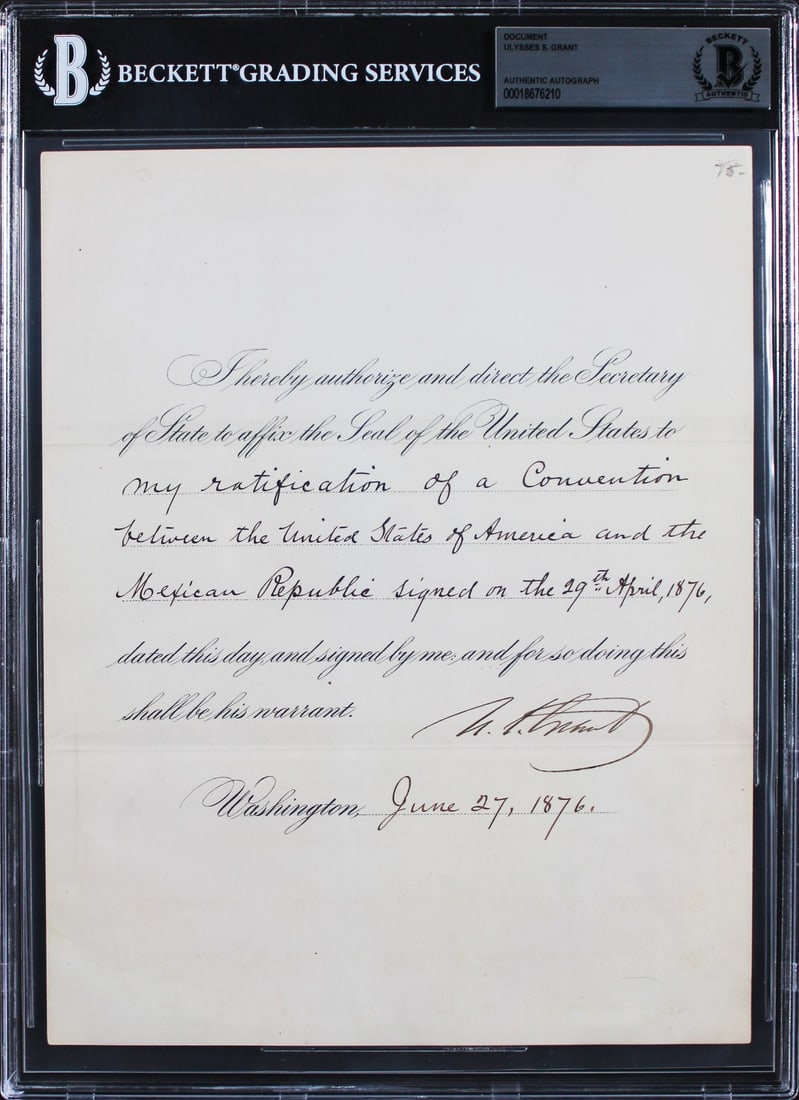 B
BECKETT® GRADING SERVICES
DOCUMENT
ULYSSES S. GRANT
AUTHENTIC AUTOGRAPH
00018676210
BECKETT
B
AUTHENTIC
I hereby authorize and direct the Secretary
of State to affix the Seal of the United States to
my ratification of a Convention
between the United States of America and the
Mexican Republic signed on the 29th April, 1876,
dated this day, and signed by me: and for so doing this
shall be his warrant.
U. S. Grant
Washington, June 27, 1876.